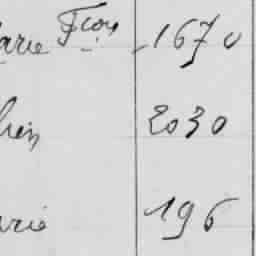 arie Fçois 1670
2030
rie 196